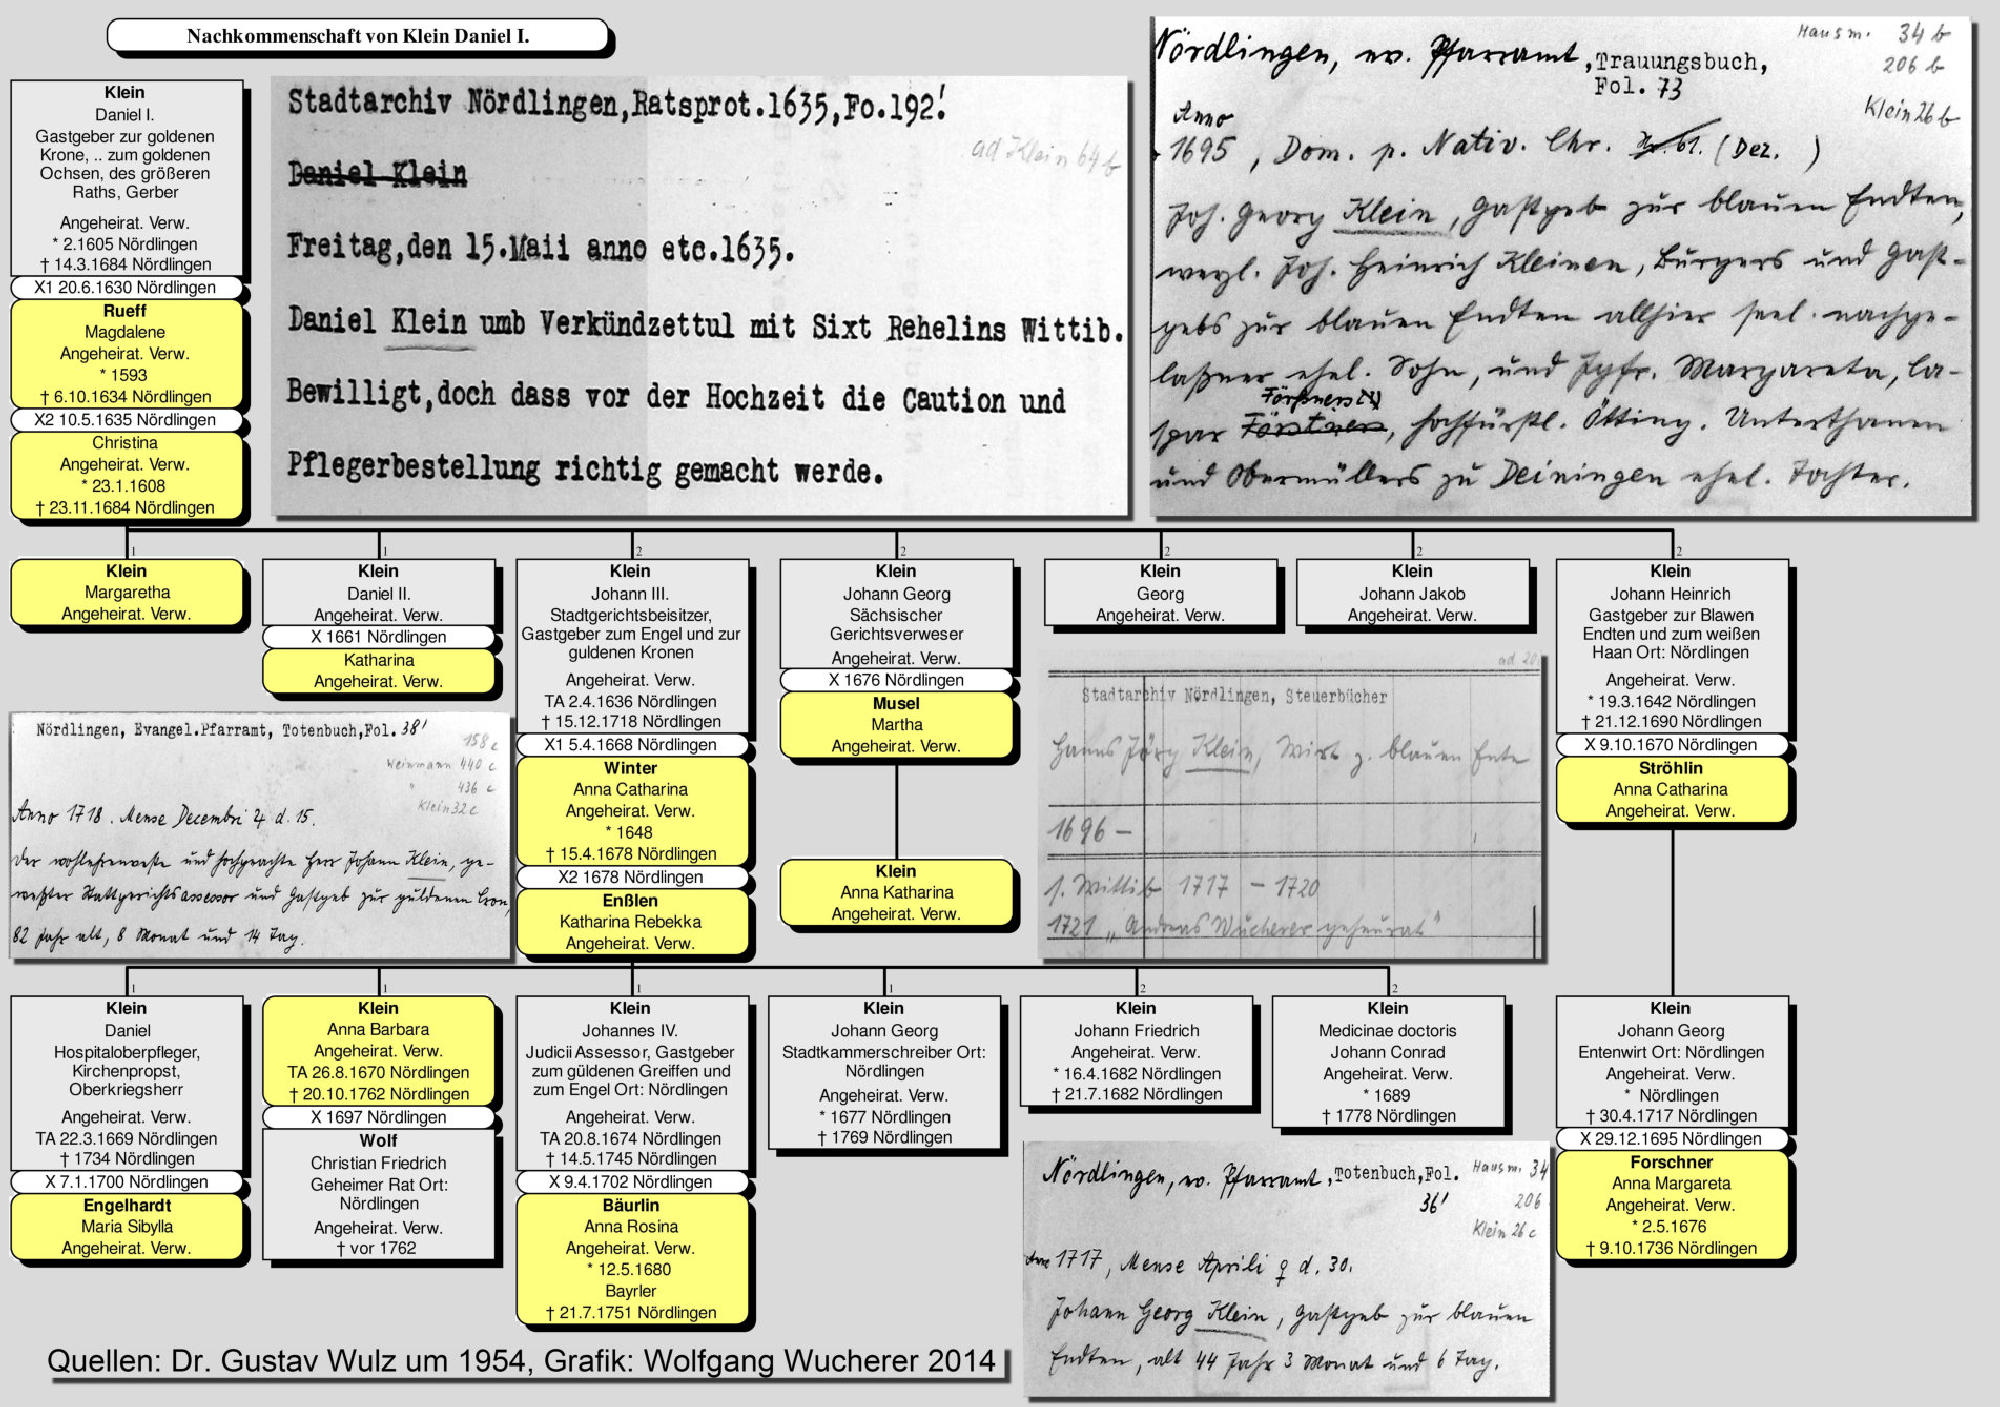 Nachkommenschaft von Klein Daniel I.
Klein
Daniel I.
Gastgeber zur goldenen
Krone, .. zum goldenen
Ochsen, des größeren
Raths, Gerber
Angeheirat. Verw.
* 2.1605 Nördlingen
† 14.3.1684 Nördlingen
X1 20.6.1630 Nördlingen
Rueff
Magdalene
Angeheirat. Verw.
* 1593
† 6.10.1634 Nördlingen
X2 10.5.1635 Nördlingen
Christina
Angeheirat. Verw.
* 23.1.1608
† 23.11.1684 Nördlingen
Stadtarchiv Nördlingen,Ratsprot.1635,Fo.192!
ad Klein 64 b
Daniel Klein
Freitag,den 15.Maii anno etc.1635.
Daniel Klein umb Verkündzettul mit Sixt Rehelins Wittib.
Bewilligt,doch dass vor der Hochzeit die Caution und
Pflegerbestellung richtig gemacht werde.
Hausm. 34 b
206 b
Nördlingen, ev. Pfarramt, Trauungsbuch,
Fol. 73
Klein 26 b
Anno
1695, Dom. p. Nativ. Chr. (Dez. )
Joh. Georg Klein, Gastgeb zur blauen Endten,
weyl. Joh. Heinrich Kleinen, Burgers und Gast-
gebs zur blauen Endten allhier seel. nachge-
laßner ehel. Sohn, und Jgfr. Margareta, Ca-
spar Förstners, hochfürstl. Ötting. Unterthanen
und Obermüllers zu Deiningen ehel. Tochter.
1
Klein
Margaretha
Angeheirat. Verw.
1
Klein
Daniel II.
Angeheirat. Verw.
X 1661 Nördlingen
Katharina
Angeheirat. Verw.
2
Klein
Johann III.
Stadtgerichtsbeisitzer,
Gastgeber zum Engel und zur
guldenen Kronen
Angeheirat. Verw.
TA 2.4.1636 Nördlingen
† 15.12.1718 Nördlingen
X1 5.4.1668 Nördlingen
Winter
Anna Catharina
Angeheirat. Verw.
* 1648
† 15.4.1678 Nördlingen
X2 1678 Nördlingen
Enßlen
Katharina Rebekka
Angeheirat. Verw.
2
Klein
Johann Georg
Sächsischer
Gerichtsverweser
Angeheirat. Verw.
X 1676 Nördlingen
Musel
Martha
Angeheirat. Verw.
Klein
Anna Katharina
Angeheirat. Verw.
2
Klein
Georg
Angeheirat. Verw.
2
Klein
Johann Jakob
Angeheirat. Verw.
2
Klein
Johann Heinrich
Gastgeber zur Blawen
Endten und zum weißen
Haan Ort: Nördlingen
Angeheirat. Verw.
* 19.3.1642 Nördlingen
† 21.12.1690 Nördlingen
X 9.10.1670 Nördlingen
Ströhlin
Anna Catharina
Angeheirat. Verw.
Nördlingen, Evangel.Pfarramt, Totenbuch,Fol. 38'
158 c
Weinmann 440 c
" 436 c
Klein 32 c
Anno 1718. Mense Decembri 4 d. 15.
Der wohlehrenveste und hochgeachte Herr Johann Klein, ge-
weßter Stattgerichtsassessor und Gastgeb zur guldenen Cron,
82 Jahr alt, 8 Monat und 14 Tag.
ad 20
Stadtarchiv Nördlingen, Steuerbücher
Hanns Jörg Klein, Wirt z. blauen Ente
1696 –
s. Wittib 1717 – 1720
1721 „Andreas Wucherer geheurat"
1
Klein
Daniel
Hospitaloberpfleger,
Kirchenpropst,
Oberkriegsherr
Angeheirat. Verw.
TA 22.3.1669 Nördlingen
† 1734 Nördlingen
X 7.1.1700 Nördlingen
Engelhardt
Maria Sibylla
Angeheirat. Verw.
1
Klein
Anna Barbara
Angeheirat. Verw.
TA 26.8.1670 Nördlingen
† 20.10.1762 Nördlingen
X 1697 Nördlingen
Wolf
Christian Friedrich
Geheimer Rat Ort:
Nördlingen
Angeheirat. Verw.
† vor 1762
1
Klein
Johannes IV.
Judicii Assessor, Gastgeber
zum güldenen Greiffen und
zum Engel Ort: Nördlingen
Angeheirat. Verw.
TA 20.8.1674 Nördlingen
† 14.5.1745 Nördlingen
X 9.4.1702 Nördlingen
Bäurlin
Anna Rosina
Angeheirat. Verw.
* 12.5.1680
Bayrler
† 21.7.1751 Nördlingen
1
Klein
Johann Georg
Stadtkammerschreiber Ort:
Nördlingen
Angeheirat. Verw.
* 1677 Nördlingen
† 1769 Nördlingen
2
Klein
Johann Friedrich
Angeheirat. Verw.
* 16.4.1682 Nördlingen
† 21.7.1682 Nördlingen
2
Klein
Medicinae doctoris
Johann Conrad
Angeheirat. Verw.
* 1689
† 1778 Nördlingen
Klein
Johann Georg
Entenwirt Ort: Nördlingen
Angeheirat. Verw.
* Nördlingen
† 30.4.1717 Nördlingen
X 29.12.1695 Nördlingen
Forschner
Anna Margareta
Angeheirat. Verw.
* 2.5.1676
† 9.10.1736 Nördlingen
Nördlingen, ev. Pfarramt, Totenbuch,Fol.
36'
Hausm. 34
206
Klein 26 c
Anno 1717, Mense Aprili ♀ d. 30.
Johann Georg Klein, Gastgeb zur blauen
Endten, alt 44 Jahr 3 Monat und 6 Tag.
Quellen: Dr. Gustav Wulz um 1954, Grafik: Wolfgang Wucherer 2014